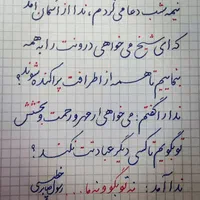 نیمه شب دعا می کردم، ندا از آسمان آمد
که ای شیخ می خواهی درونت را به همه
بنماییم تا همه از اطرافت پراکنده شوند؟
ندا را گفتم: می خواهی از مهر و رحمت و بخشش
تو بگویم تا کسی دیگر عبادتت نکند؟
ندا آمد: نه تو بگو و نه ما....